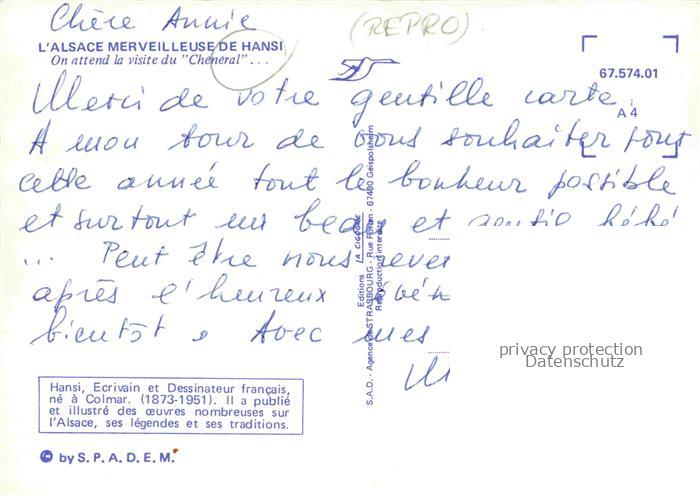 Chère Annie
(REPRO)
L'ALSACE MERVEILLEUSE DE HANSI
On attend la visite du "Chénéral"...
67.574.01
A 4
Merci de votre gentille carte.
A mon tour de vous souhaiter pour
cette année tout le bonheur possible
et surtout un beau et gentil bébé
... Peut être nous
après l'heureux
bientôt. Avec mes
Editions LA CIGOGNE
S.A.D. - Agence de STRASBOURG - Rue - 67400 Geispolsheim
Reproduction interdite
privacy protection
Datenschutz
Hansi, Ecrivain et Dessinateur français,
né à Colmar. (1873-1951). Il a publié
et illustré des œuvres nombreuses sur
l'Alsace, ses légendes et ses traditions.
© by S.P.A.D.E.M.